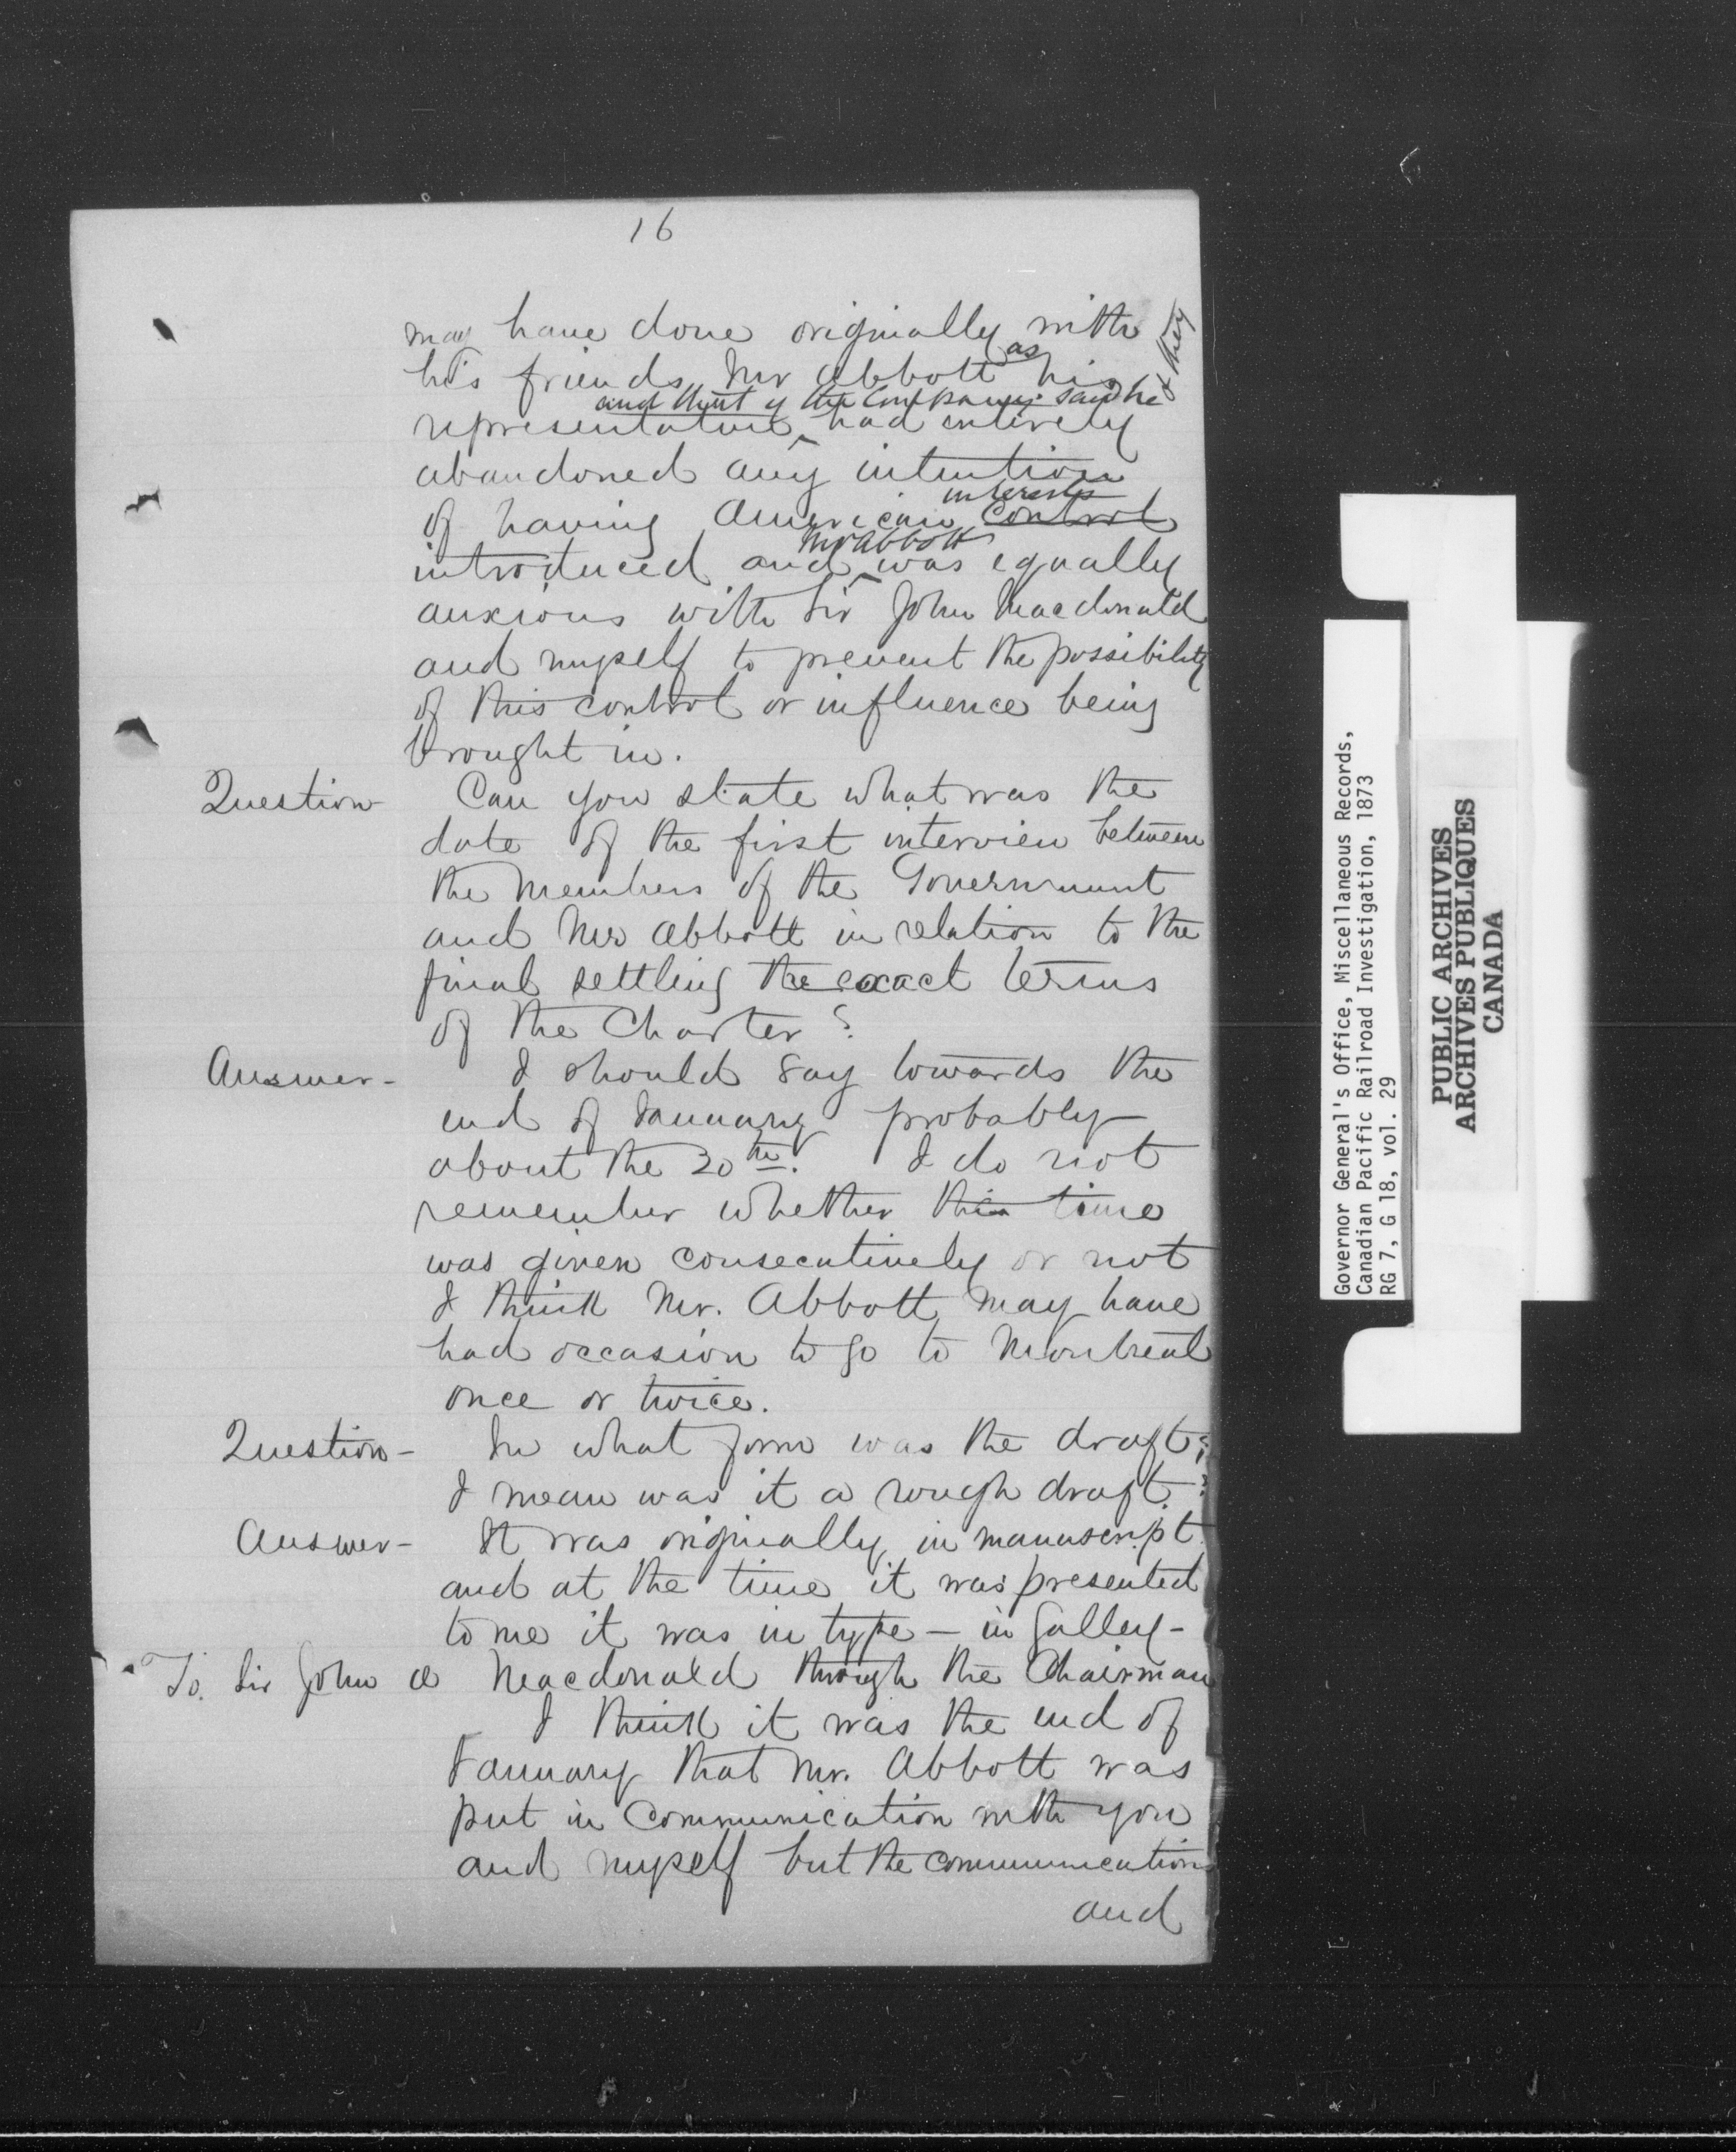 16
may have done originally with
his friends, Mr Abbott as his
and that of the Company said he & they
representative had entirely
abandoned any intention
interests
of having American control
Mr Abbott
introduced and was equally
anxious with Sir John Macdonald
and myself to prevent the possibility
of this control or influence being
brought in.
Question- Can you state what was the
date of the first interview between
the members of the Government
and Mr Abbott in relation to the
final settling the exact terms
of the Charter?
Answer- I should say towards the
end of January probably
about the 20th. I do not
remember whether this time
was given consecutively or not
I think Mr. Abbott may have
had occasion to go to Montreal
once or twice.
Question- In what form was the draft;
I mean was it a rough draft?
Answer- It was originally in manuscript
and at the time it was presented
to me it was in type - in galley -
To. Sir John A Macdonald through the Chairman
I think it was the end of
January that Mr. Abbott was
put in communication with you
and myself but the communications
and
Governor General's Office, Miscellaneous Records,
Canadian Pacific Railroad Investigation, 1873
RG 7, G 18, vol. 29
PUBLIC ARCHIVES
ARCHIVES PUBLIQUES
CANADA